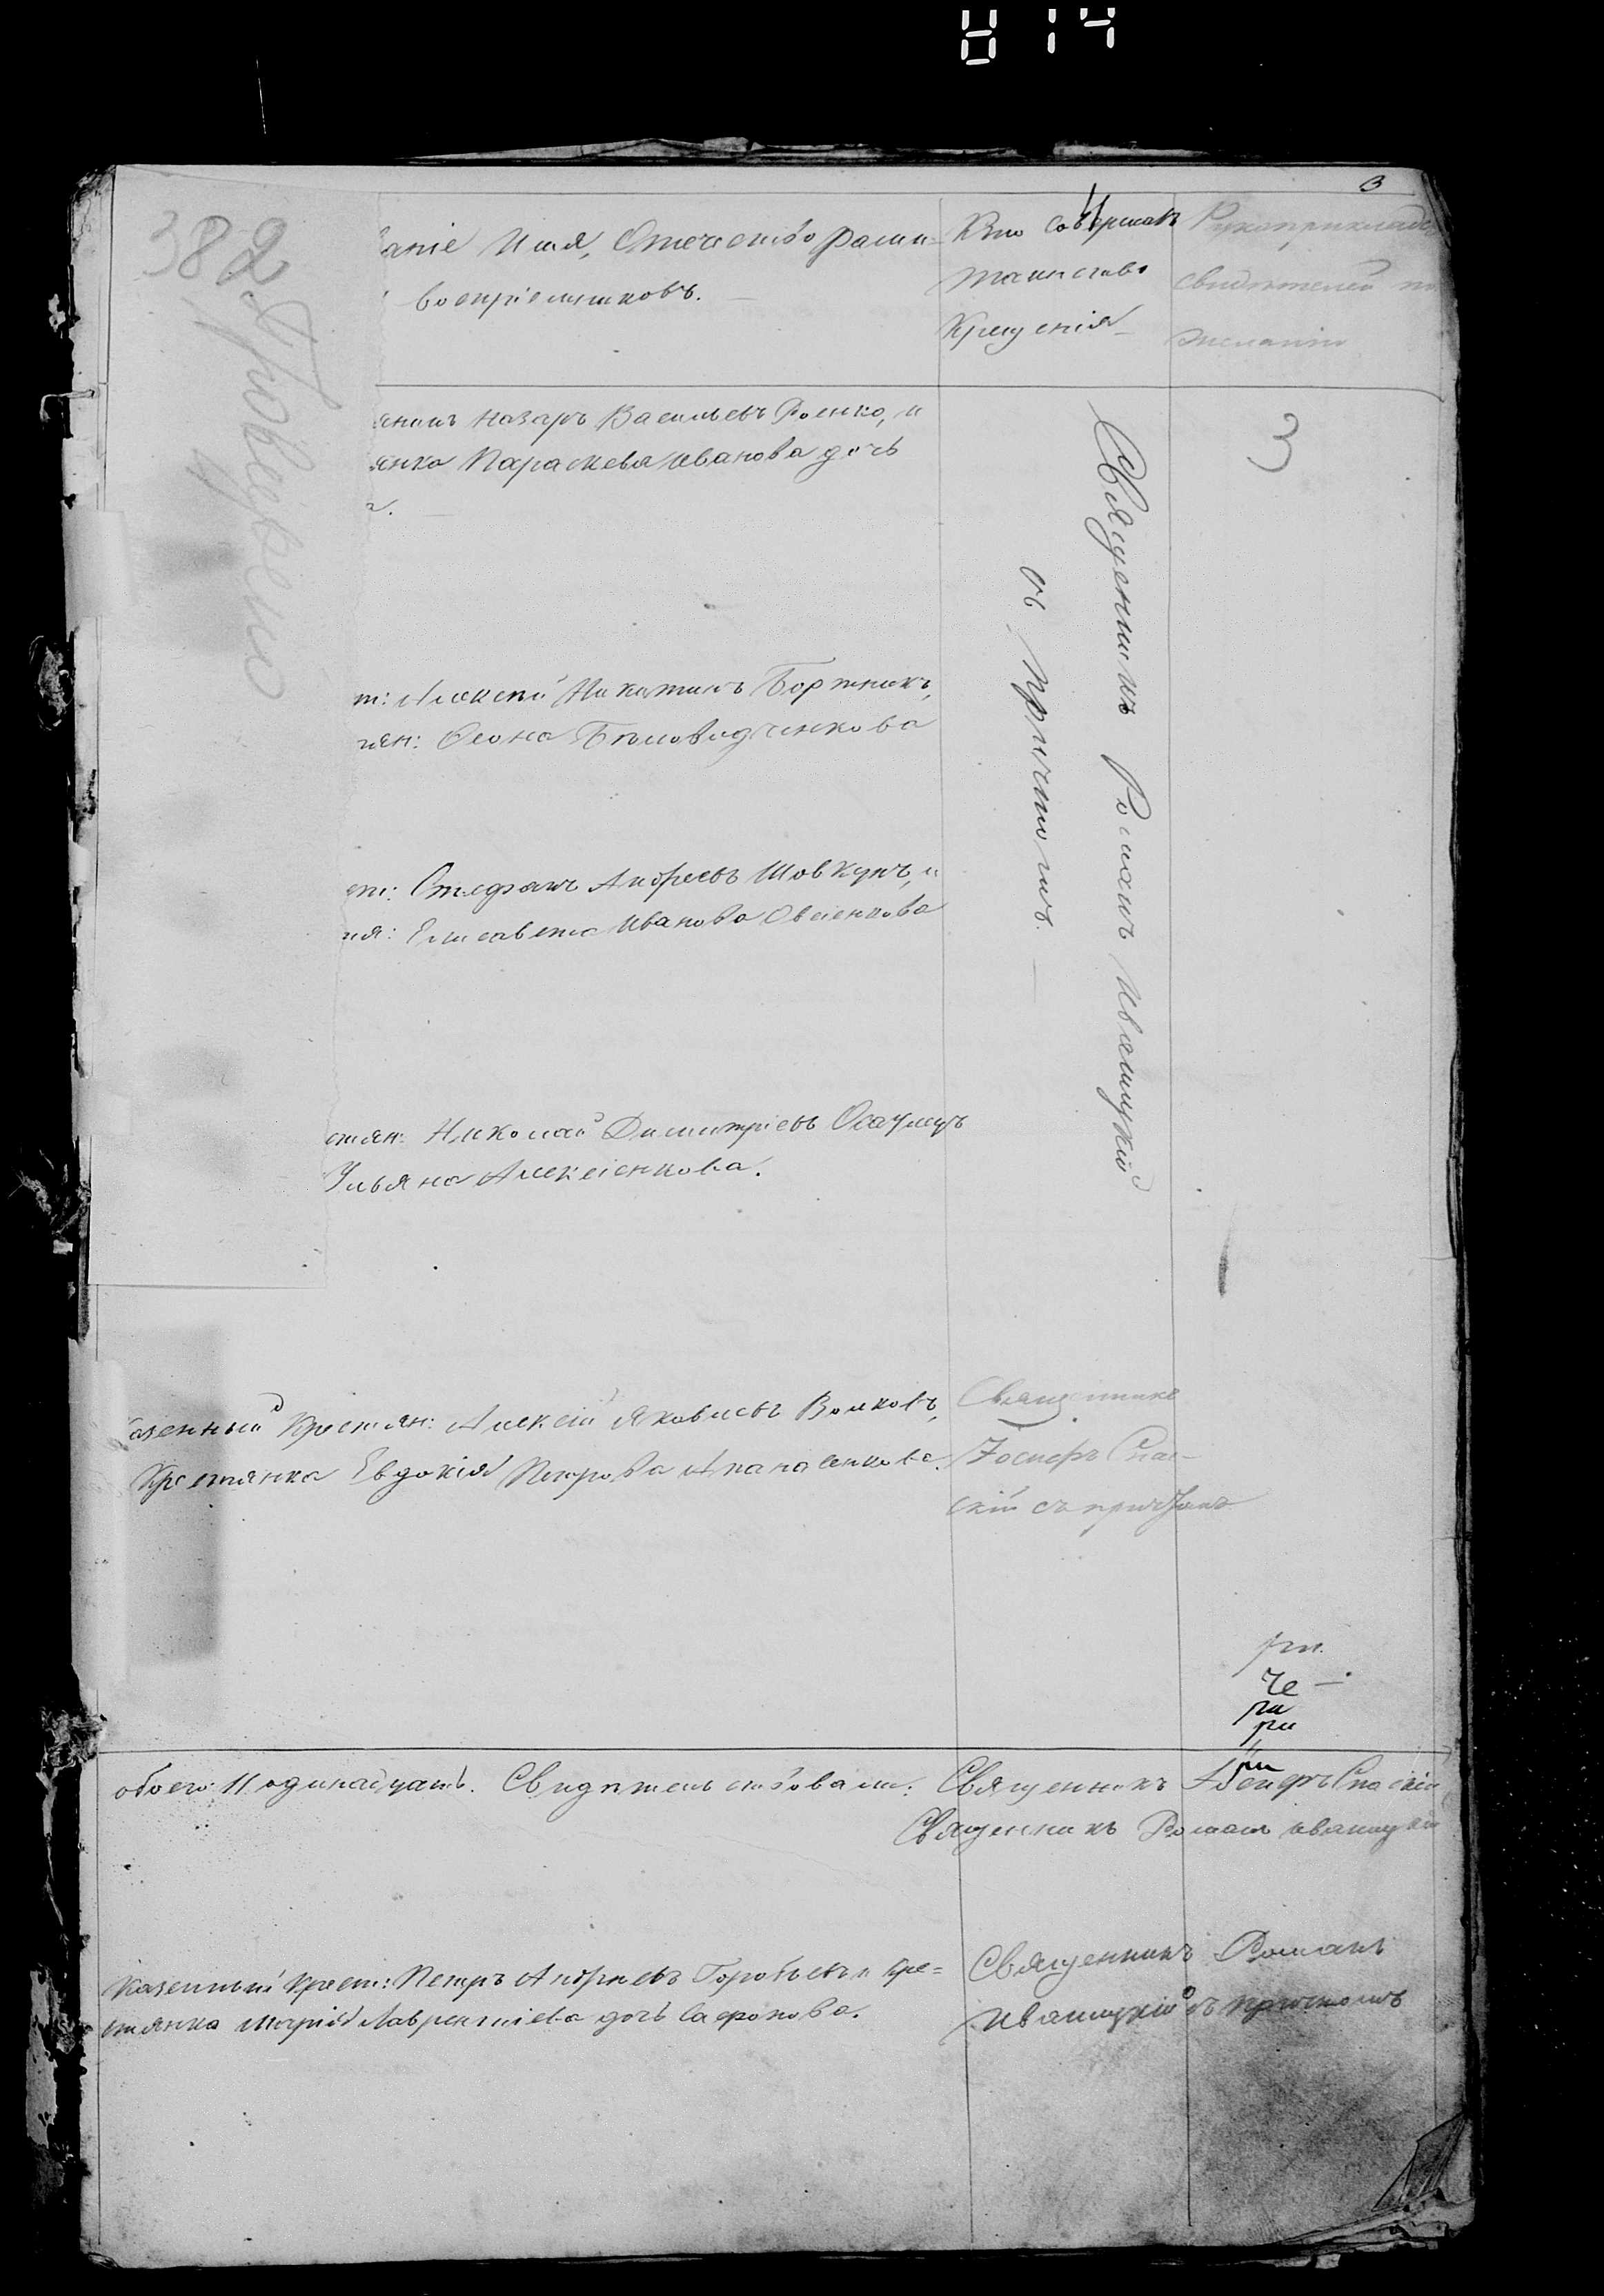 3
382
Проверено
аніе Имя, Отечество фами=
воспріемниковъ.
Кто совершалъ
таинство
Крещенія
Рукоприклад
свидѣтелей по
желанію
3
янинъ Назаръ Васильевъ Роенко, и
янка Параскева Иванова дочь
Священникъ Романъ Ивашуцкій
съ причтомъ.
т: Алексѣй Никитинъ Бортникъ,
тян:
ет: Стефанъ Андреевъ Шовкунъ, и
тя: Елисавета Иванова Овсіенкова
стян: Николай Димитріевъ Осауленко
Ульяна Алексіенкова.
азенный Крестьян: Алексѣй Яковлевъ Волковъ,
Крестьянка Евдокія Петрова Апанасенкова.
Священникъ
Іосифъ Спас-
скій съ причтомъ
обоего 11 одинадцать. Свидѣтельствовали: Священникъ Іосифъ Спаскій
Священникъ Романъ Ивашуцкій
Казенный Крест: Петръ Андреевъ Горобьевъ и кре=
стьянка Марія Лаврентіева дочь Сафонова.
Священникъ Романъ
Ивашуцкій съ причтомъ